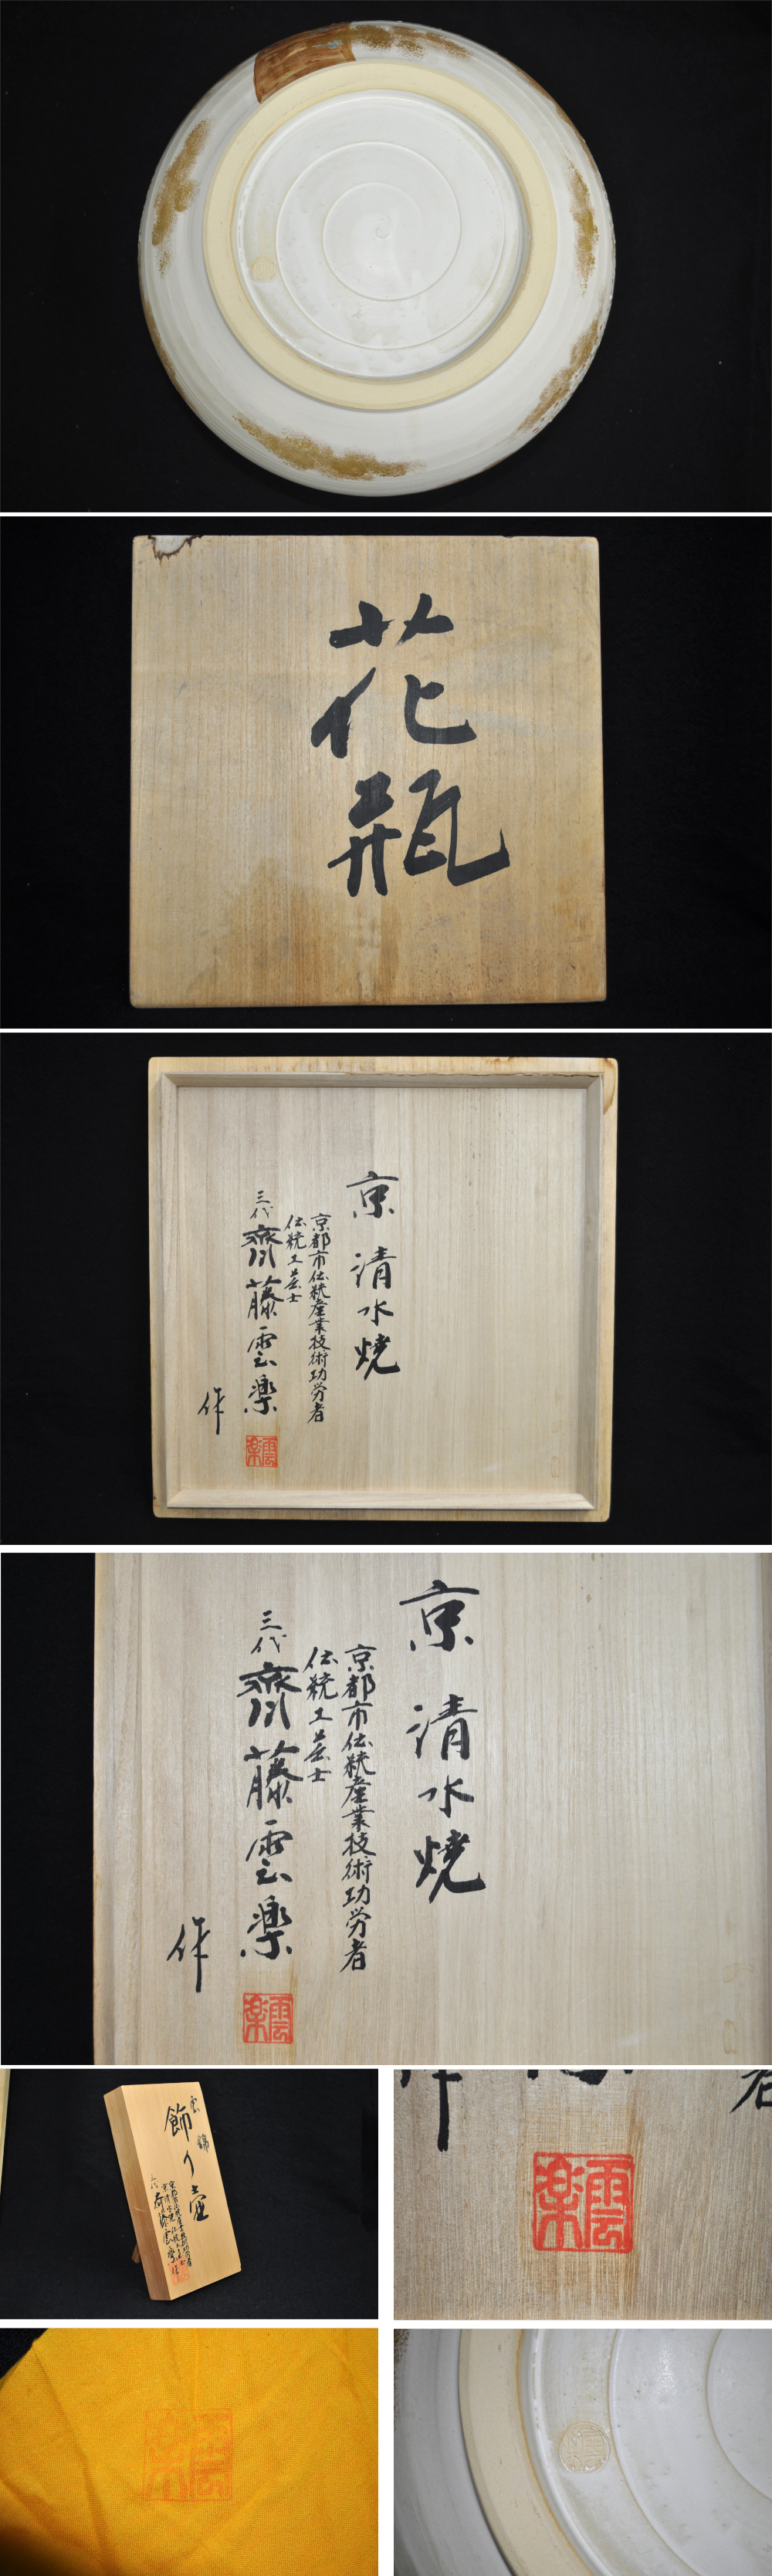 花瓶
京 清水焼
京都市伝統産業技術功労者
伝統工芸士
三代 齋藤雲楽
作
雲楽
京 清水焼
京都市伝統産業技術功労者
伝統工芸士
三代 齋藤雲楽
作
雲楽
雲錦
飾り壺
雲楽
雲楽